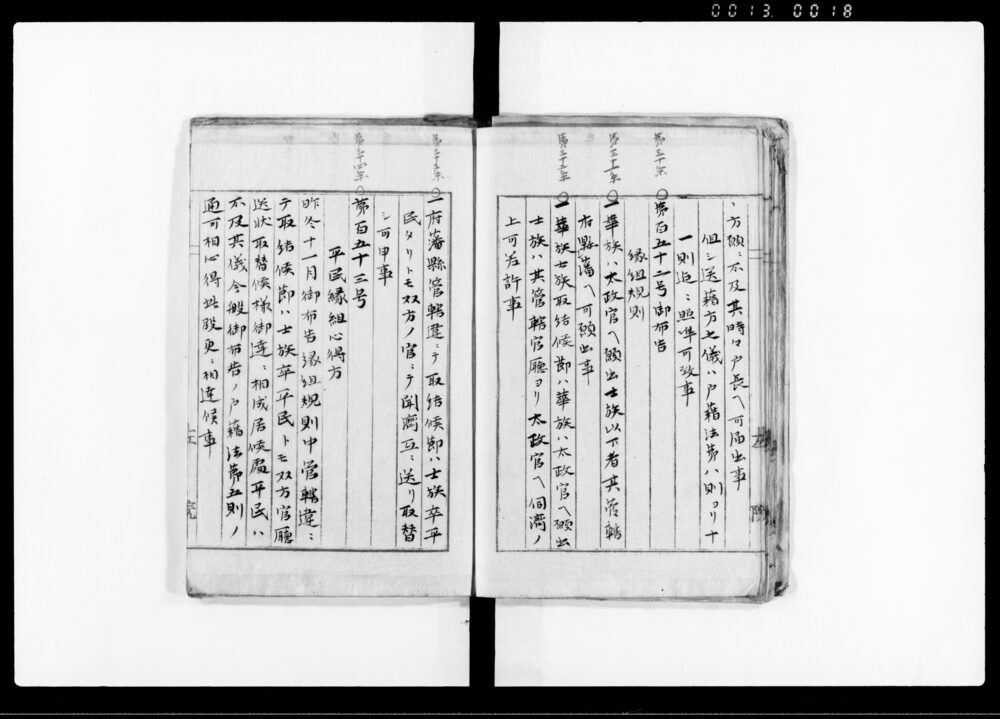 0013. 0018
、方願ニ不及其時々戸長ヘ可届出事
但シ送籍方之儀ハ戸籍法第八則ヨリ十
一則迄ニ照準可致事
第三十条
○第百五十二号御布告
縁組規則
第三十一条
○一華族ハ太政官ヘ願出士族以下者其管轄
府縣藩ヘ可願出事
第三十二条
○一華族士族取結候節ハ華族ハ太政官ヘ願出
士族ハ其管轄官廳ヨリ太政官ヘ伺濟ノ
上可差許事
第三十三条
○一府藩縣管轄違ニテ取結候節ハ士族卒平
民タリトモ双方ノ官ニテ聞濟互ニ送リ取替
シ可申事
第三十四条
○第百五十三号
平民縁組心得方
昨冬十一月御布告縁組規則中管轄違ニ
テ取結候節ハ士族卒平民トモ双方官廳
送状取替候様御達ニ相成居候處平民ハ
不及其儀今般御布告ノ戸籍法第五則ノ
通可相心得此段更ニ相達候事
院